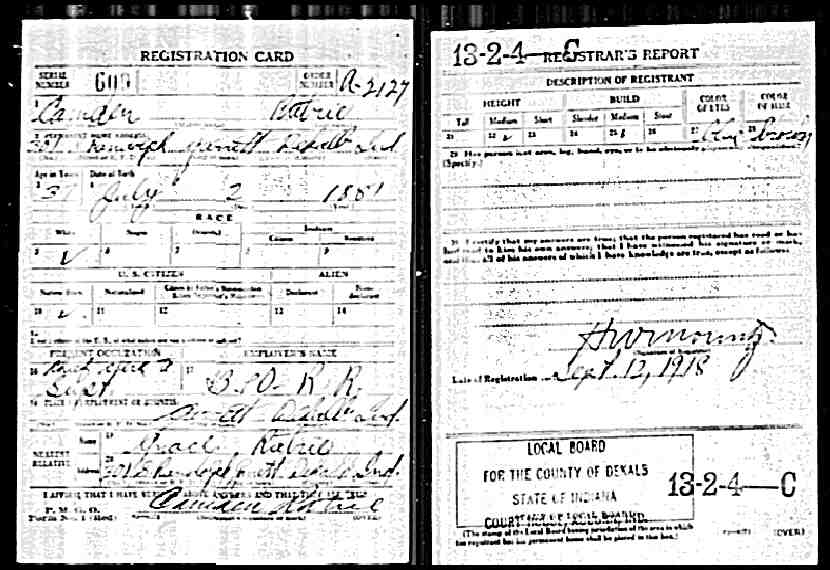 REGISTRATION CARD
SERIAL NUMBER 609 ORDER NUMBER A-2127
Camden
PERMANENT HOME ADDRESS
301 S Randolph Garrett Dekalb Ind
Age in Years Date of Birth
37 July 2 1881
RACE
White Negro Oriental Indian
Citizen Noncitizen
5 ✓ 6 7 8 9
U. S. CITIZEN ALIEN
Native Born Naturalized Citizen by Father's Naturalization Declarant Non-declarant
10 ✓ 11 12 13 14
15
PRESENT OCCUPATION EMPLOYER'S NAME
16 17 B. & O. R. R.
Dept
Garrett Dekalb Ind.
NEAREST RELATIVE Name 19 Grace
Address 20 301 S Randolph Garrett Dekalb Ind.
I AFFIRM THAT I HAVE VERIFIED ABOVE ANSWERS AND THAT THEY ARE TRUE
P. M. G. O.
Form No. 1 (Red) Camden (OVER)
13-2-4-C REGISTRAR'S REPORT
DESCRIPTION OF REGISTRANT
HEIGHT BUILD COLOR OF EYES COLOR OF HAIR
Tall Medium Short Slender Medium Stout
21 22 ✓ 23 24 25 26 27 28 Brown
29 Has person lost arm, leg, hand, eye, or is he obviously physically disqualified?
(Specify.)
30 I certify that my answers are true; that the person registered has read or has
had read to him his own answers; that I have witnessed his signature or mark,
and that all of his answers of which I have knowledge are true, except as follows:
(Signature of Registrar)
Date of Registration Sept 12, 1918
LOCAL BOARD
FOR THE COUNTY OF DEKALB
STATE OF INDIANA
COURT HOUSE, AUBURN, IND.
13-2-4-C
(STAMP OF LOCAL BOARD)
(The stamp of the Local Board having jurisdiction of the area in which
the registrant has his permanent home shall be placed in this box.)
(OVER)